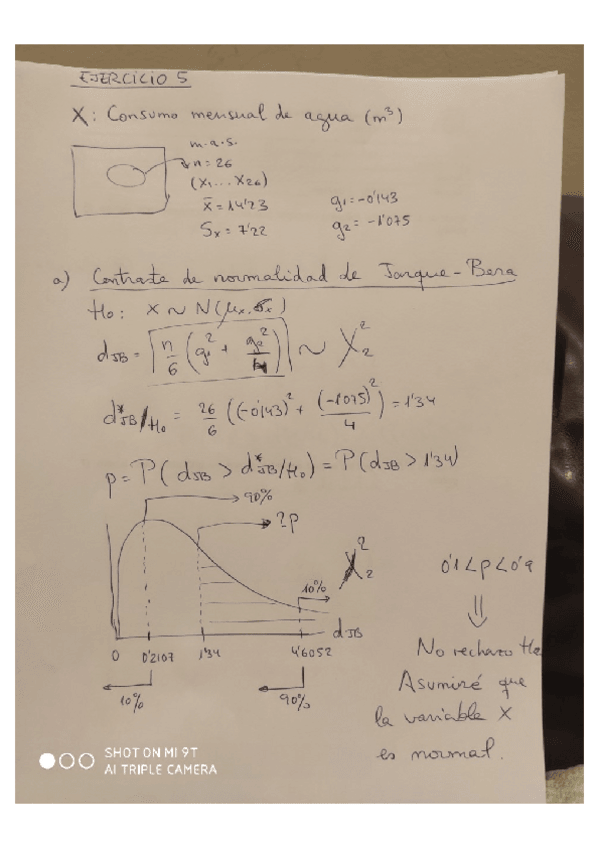 EJERCICIO 5
X: Consumo mensual de agua (m³)
m.a.s.
n = 26
(X₁ ... X₂₆)
x̄ = 14'23
Sₓ = 7'22
g₁ = -0'143
g₂ = -1'075
a) Contraste de normalidad de Jarque-Bera
H₀: X ~ N(μₓ, σₓ)
d_JB = n/6 (g₁² + g₂²/4) ~ χ²₂
d*_JB/H₀ = 26/6 ((-0'143)² + (-1'075)²/4) = 1'34
p = P(d_JB > d*_JB/H₀) = P(d_JB > 1'34)
90%
¿p
χ²₂
10%
d_JB
0 0'2107 1'34 4'6052
10% 90%
0'1 < p < 0'9
⇓
No rechazo H₀
Asumiré que
la variable X
es normal.
SHOT ON MI 9T
AI TRIPLE CAMERA